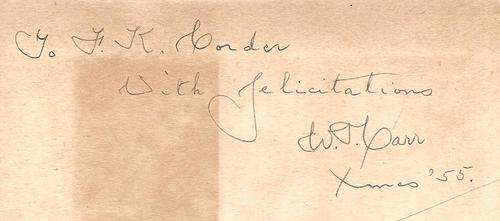 To F. K. Corder
With felicitations
W. T. Carr
Xmas '55.